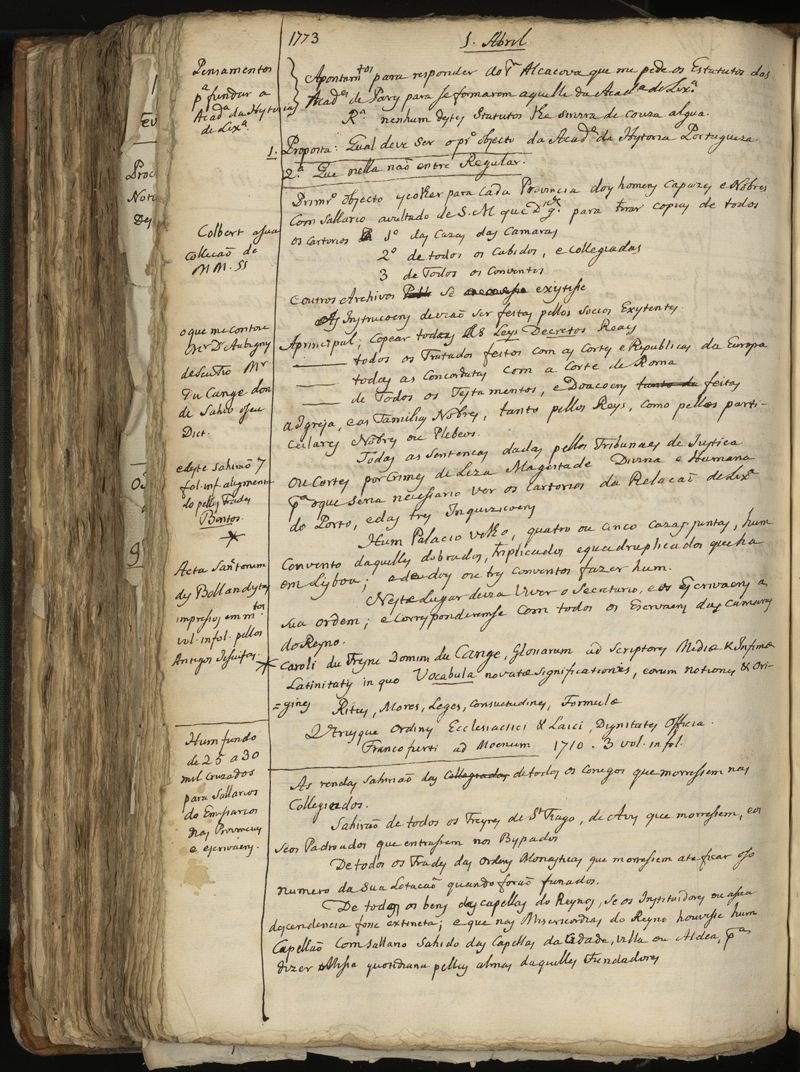 1773
1. Abril
Pensamentos
pª fundar a
Acadª da Hystoria
de Lixª.
Apontamtos para responder ao Alcacova que me pede os Estatutos das
Acades de Pary para se formarem aquelle da Acadª de Lixª.
Rª nenhum destes Statutos lhe servira de couza algua.
1. Proposta: Qual deve ser o prº objecto da Acadª da Hystoria Portugueza
2.ª Que nella não entre Regular.
Primrº objecto escolher para cada Provincia doys homens capazes e Nobres
com sallario avultado de S. M que Ds gde. para tirar copias de todos
os cartorios 1º das Cazas das Camaras
2º de todos os Cabidos, e Collegiadas
3 de Todos os Conventos
e outros Archivos se exytisse
As Instrucoens devião ser feitas pellos socios Exytentes
A principal; copear todas as Leys Decretos Reays
—— todos os Tratados feitos com as Cortes e Republicas da Europa
—— todas as Concordatas com a Corte de Roma
—— de Todos os Testamentos, e Doacoens tanto da feitas
a Igreja, e as Familias Nobres, tanto pellos Reys, como pellos parti-
culares Nobres ou Plebeos.
Todas as sentencas dadas pellos Tribunaes de Justica
ou Cortes por Crimes de Leza Magestade Divina e Humana
pª o que seria necessario ver os cartorios da Relacaõ de Lixª
do Porto, e das tres Inquizicoens
Hum Palacio velho, quatro ou cinco cazas juntas, hum
Convento daquelles dobrados, triplicados e quadruplicados que ha
em Lysboa; e de doys ou tres conventos fazer hum.
Neste Lugar devia viver o Secretario, e os Escrivaens a
sua ordem; e corresponderense com todos os Escrivaens das Camaras
do Reyno.
Caroli du Fresne Domini du Cange, Glosarium ad Scriptores Mediæ & Infimæ
Latinitatis in quo Vocabula novatæ significationis, eorum notiones & Ori-
=gines Ritus, Mores, Leges, Consuetudines, Formulæ
Utrusque Ordinis Ecclesiastici & Laici, Dignitates Officia.
Francofurti ad Moenum 1710. 3 vol. in fol.
As rendas sahirião das Collegiadas de todos os Conegos que morressem nas
Collegiados.
Sahirão de todos os Freyres de St Tiago, de Avis que morressem, e os
seos Padroados que entrassem nos Byspados
De todos os Frades das Ordens Monasticas que morressem ate ficar o so
numero da sua Lotacaõ quando foraõ fundados.
De todos os bens das capellas do Reyno, se os Instituidores ou a sua
descendencia fosse extincta; e que nas Misericordias do Reyno houvesse hum
Capellão com sallario sahido das Capellas da Cidade, villa ou Aldea, pª
dizer Missa quotidiana pellas almas daquelles Fundadores
Colbert a sua
collecaõ de
MM. SS
o que me contou
Mr D'Aubigny
de seu Tio Mr
Du Cange don
de Sahio o seu
Dict.
e deste Sahirão 7
fol. inf. augmenta
do pellos Frades
Bentos.
*
Acta Sanctorum
dos Bollandystas
impressos em mtos
vol. in fol. pellos
Antigos Jesuitas.
*
Hum fundo
de 25 a 30
mil cruzados
para Sallarios
do Emissarios
nas Provincias
e escrivaens.